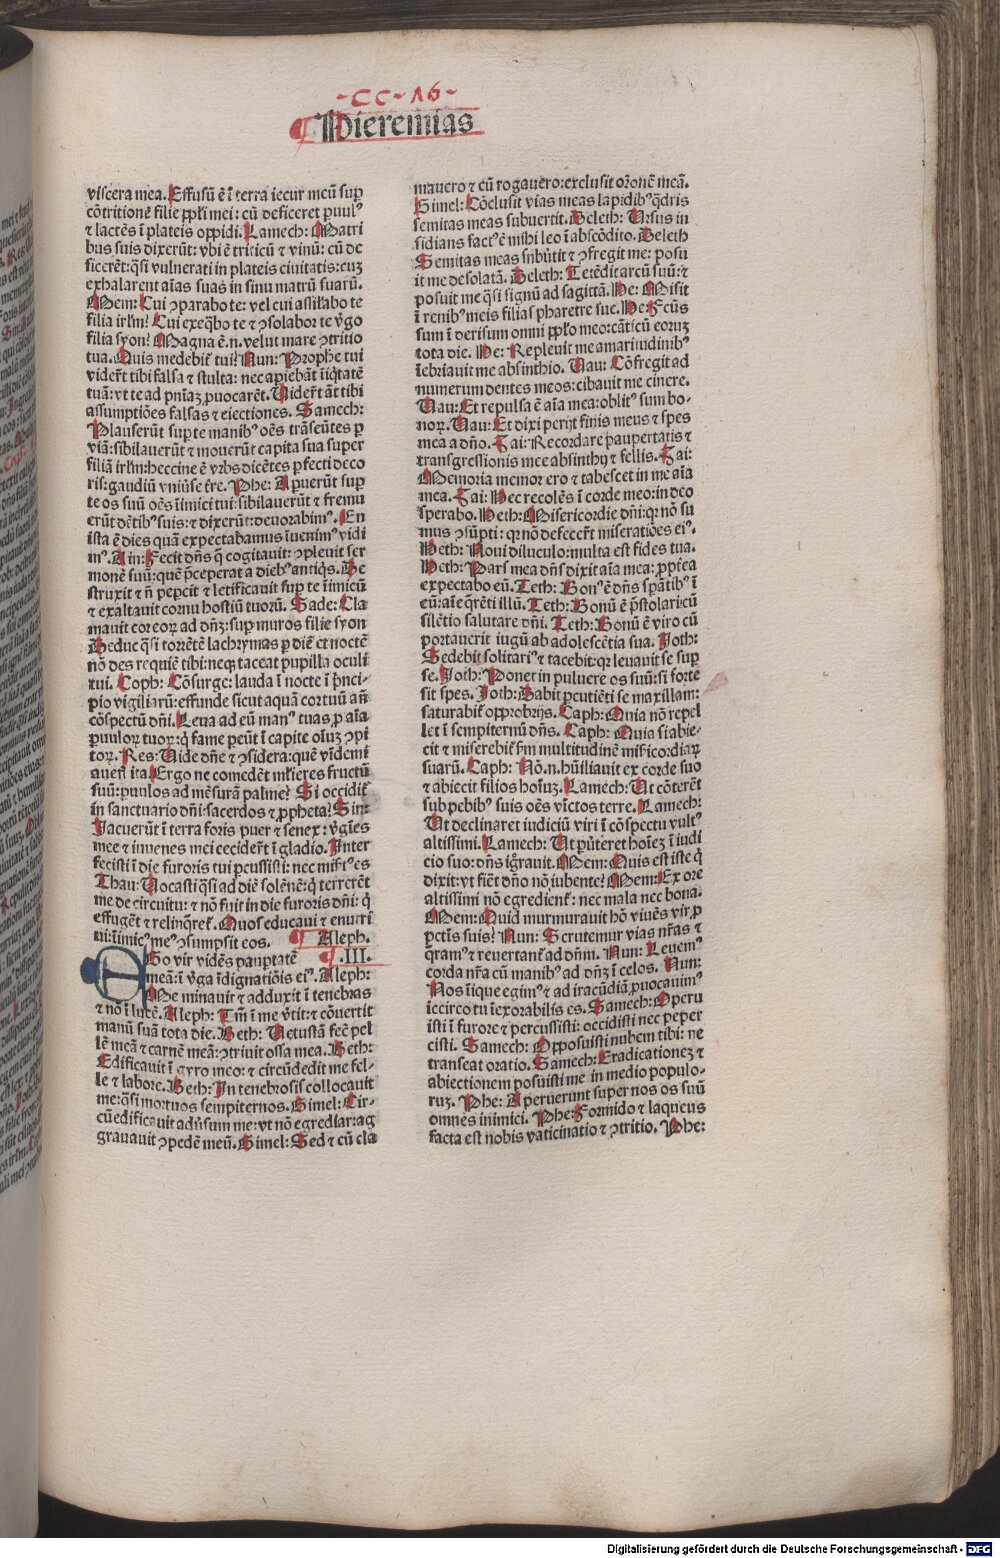 -CC-16-
Hieremias
viscera mea. Effusū ē ī terra iecur meū suꝑ
cōtritionē filie ppl̄i mei: cū deficeret ꝑuulꝰ
⁊ lactēs ī plateis oppidi. Lamech: Matri
bus suis dixerūt: vbi ē triticū ⁊ vinū: cū de
ficerēt: q̄si vulnerati in plateis ciuitatis: cuꝫ
exhalarent aīas suas in sinu matrū suarū.
Mem: Cui ↄparabo te: vel cui assil̄abo te
filia irl̄m? Cui exeq̄bo te ⁊ ↄsolabor te v̄go
filia syon? Magna ē.n. velut mare ↄtritio
tua. Quis medebit̄ tui? Nun: Prophe tui
vider̄t tibi falsa ⁊ stulta: nec apiebāt īiq̄tatē
tuā: vt te ad pn̄iaꝫ ꝓuocarēt. Vider̄t āt tibi
assumptiōes falsas ⁊ eiectiones. Samech:
Plauserūt suꝑ te manibꝰ oēs trāseūtes ꝑ
viā: sibilauerūt ⁊ mouerūt capita sua super
filiā irl̄m: heccine ē vrbs dicētes ꝑfecti deco
ris: gaudiū vniūse t̄re. Phe: Aꝑuerūt suꝑ
te os suū oēs īimici tui: sibilauerūt ⁊ fremu
erūt dētibꝰ suis: ⁊ dixerūt: deuorabimꝰ. En
ista ē dies quā expectabamus īuenimꝰ vidi
mꝰ. Ain: Fecit dn̄s q̄ cogitauit: ↄpleuit ser
monē suū: quē p̄ceperat a diebꝰ antiq̄s. De
struxit ⁊ n̄ pepcit ⁊ letificauit suꝑ te īimicū
⁊ exaltauit cornu hostiū tuorū. Sade: Cla
mauit cor eoꝝ ad dn̄ꝫ: suꝑ muros filie syon
Deduc q̄si torrētē lachrymas ꝑ diē ⁊ noctē
nō des requiē tibi: neqꝫ taceat pupilla oculi
tui. Coph: Cōsurge: lauda ī nocte ī p̄nci-
pio vigiliarū: effunde sicut aquā cor tuū añ
cōspectū dn̄i. Leua ad eū manꝰ tuas ꝓ aīa
ꝑuuloꝝ tuoꝝ: q̄ fame ꝑeūt ī capite oīuꝫ ↄpi
toꝝ. Res: Vide dn̄e ⁊ ↄsidera: quē vīdemi
auer̄ ita. Ergo ne comedēt ml̄ieres fructū
suū: ꝑuulos ad mēsurā palme? Si occidit̄
in sanctuario dn̄i: sacerdos ⁊ ꝓpheta? Sin:
Jacuerūt ī terra foris puer ⁊ senex: v̄gīes
mee ⁊ iuuenes mei cecider̄t ī gladio. Inter
fecisti ī die furoris tui ꝑcussisti: nec mis̄tꝰ es
Thau: Vocasti q̄si ad diē solēnē: q̄ terrerēt
me de circuitu: ⁊ nō fuit in die furoris dn̄i: q̄
effugēt ⁊ relinq̄ret̄. Quos educaui ⁊ enutri
ui: īimicꝰ meꝰ ↄsumpsit eos. Aleph.
.III.
EGo vir vidēs pauptatē
meā: ī v̄ga īdignatiōis eiꝰ. Aleph:
Me minauit ⁊ adduxit ī tenebras
⁊ nō ī lucē. Aleph: Tm̄ ī me v̄tit: ⁊ cōuertit
manū suā tota die. Beth: Vetustā fec̄ pel
lē meā ⁊ carnē meā: ↄtriuit ossa mea. Beth:
Edificauit ī gyro meo: ⁊ circūdedit me fel-
le ⁊ labore. Beth: In tenebrosis collocauit
me: q̄si mortuos sempiternos. Gimel: Cir-
cūedificauit aduersum me: vt nō egrediar: ag
grauauit ↄpedē meū. Gimel: Sed ⁊ cū cla
mauero ⁊ cū rogauero: exclusit or̄onē meā.
Gimel: Cōclusit vias meas lapidibꝰ q̄dris
semitas meas subuertit. Deleth: Vrsus in
sidians factꝰ ē mihi leo ī abscōdito. Deleth
Semitas meas subūtit ⁊ ↄfregit me: posu
it me desolatā. Deleth: Tetēdit arcū suū: ⁊
posuit me q̄si signū ad sagittā. He: Misit
ī renibꝰ meis filias pharetre sue. He: Fc̄us
sum ī derisum omni ppl̄o meo: cāticū eoruꝫ
tota die. He: Repleuit me amaritudinibꝰ
īebriauit me absinthio. Vau: Cōfregit ad
numerum dentes meos: cibauit me cinere.
Vau: Et repulsa ē aīa mea: oblitꝰ sum bo-
noꝝ. Vau: Et dixi perijt finis meus ⁊ spes
mea a dn̄o. Zai: Recordare paupertatis ⁊
transgressionis mee absinthij ⁊ fellis. Zai:
Memoria memor ero ⁊ tabescet in me aīa
mea. Zai: Hec recolēs ī corde meo: in deo
sperabo. Heth: Misericordie dn̄i: qꝛ nō su
mus ↄsūpti: qꝛ nō defecer̄t miseratiōes eiꝰ.
Heth: Noui diluculo: multa est fides tua.
Heth: Pars mea dn̄s dixit aīa mea: ꝓpt̄ea
expectabo eū. Teth: Bonꝰ ē dn̄s sp̄atibꝰ ī
eū: aīe q̄rēti illū. Teth: Bonū ē p̄stolari cū
silētio salutare dn̄i. Teth: Bonū ē viro cū
portauerit iugū ab adolescētia sua. Joth:
Sedebit solitariꝰ ⁊ tacebit: qꝛ leuauit se suꝑ
se. Joth: Ponet in puluere os suū: si forte
sit spes. Joth: Dabit ꝑcutiēti se maxillam:
saturabit̄ opprobrijs. Caph: Quia nō repel
let ī sempiternū dn̄s. Caph: Quia si abie-
cit ⁊ miserebit̄ s̄m multitudinē mis̄icordiaꝝ
suarū. Caph: Nō.n. hūiliauit ex corde suo
⁊ abiecit filios hoīuꝫ. Lamech: Vt cōterēt
sub pedibꝰ suis oēs vīctos terre. Lamech:
Vt declinaret iudiciū viri ī cōspectu vultꝰ
altissimi. Lamech: Vt ꝑūteret hoīeꝫ ī iudi
cio suo: dn̄s ig̅rauit. Mem: Quis est iste q̄
dixit: vt fiēt dn̄o nō iubente? Mem: Ex ore
altissimi nō egredient̄: nec mala nec bona.
Mem: Quid murmurauit hō viuēs vir ꝓ
pctīs suis? Nun: Scrutemur vias nr̄as ⁊
q̄ramꝰ ⁊ reuertant̄ ad dn̄m. Nun: Leuemꝰ
corda nr̄a cū manibꝰ ad dn̄ꝫ ī celos. Nun:
Nos īique egimꝰ ⁊ ad iracūdiā ꝓuocauimꝰ
iccirco tu īexorabilis es. Samech: Operu
isti ī furore ⁊ percussisti: occidisti nec peper
cisti. Samech: Opposuisti nubem tibi: ne
transeat oratio. Samech: Eradicationeꝫ ⁊
abiectionem posuisti me in medio populo-
ruꝫ. Phe: Aperuerunt super nos os suū
omnes inimici. Phe: Formido ⁊ laqueus
facta est nobis vaticinatio ⁊ ↄtritio. Phe:
Digitalisierung gefördert durch die Deutsche Forschungsgemeinschaft - DFG